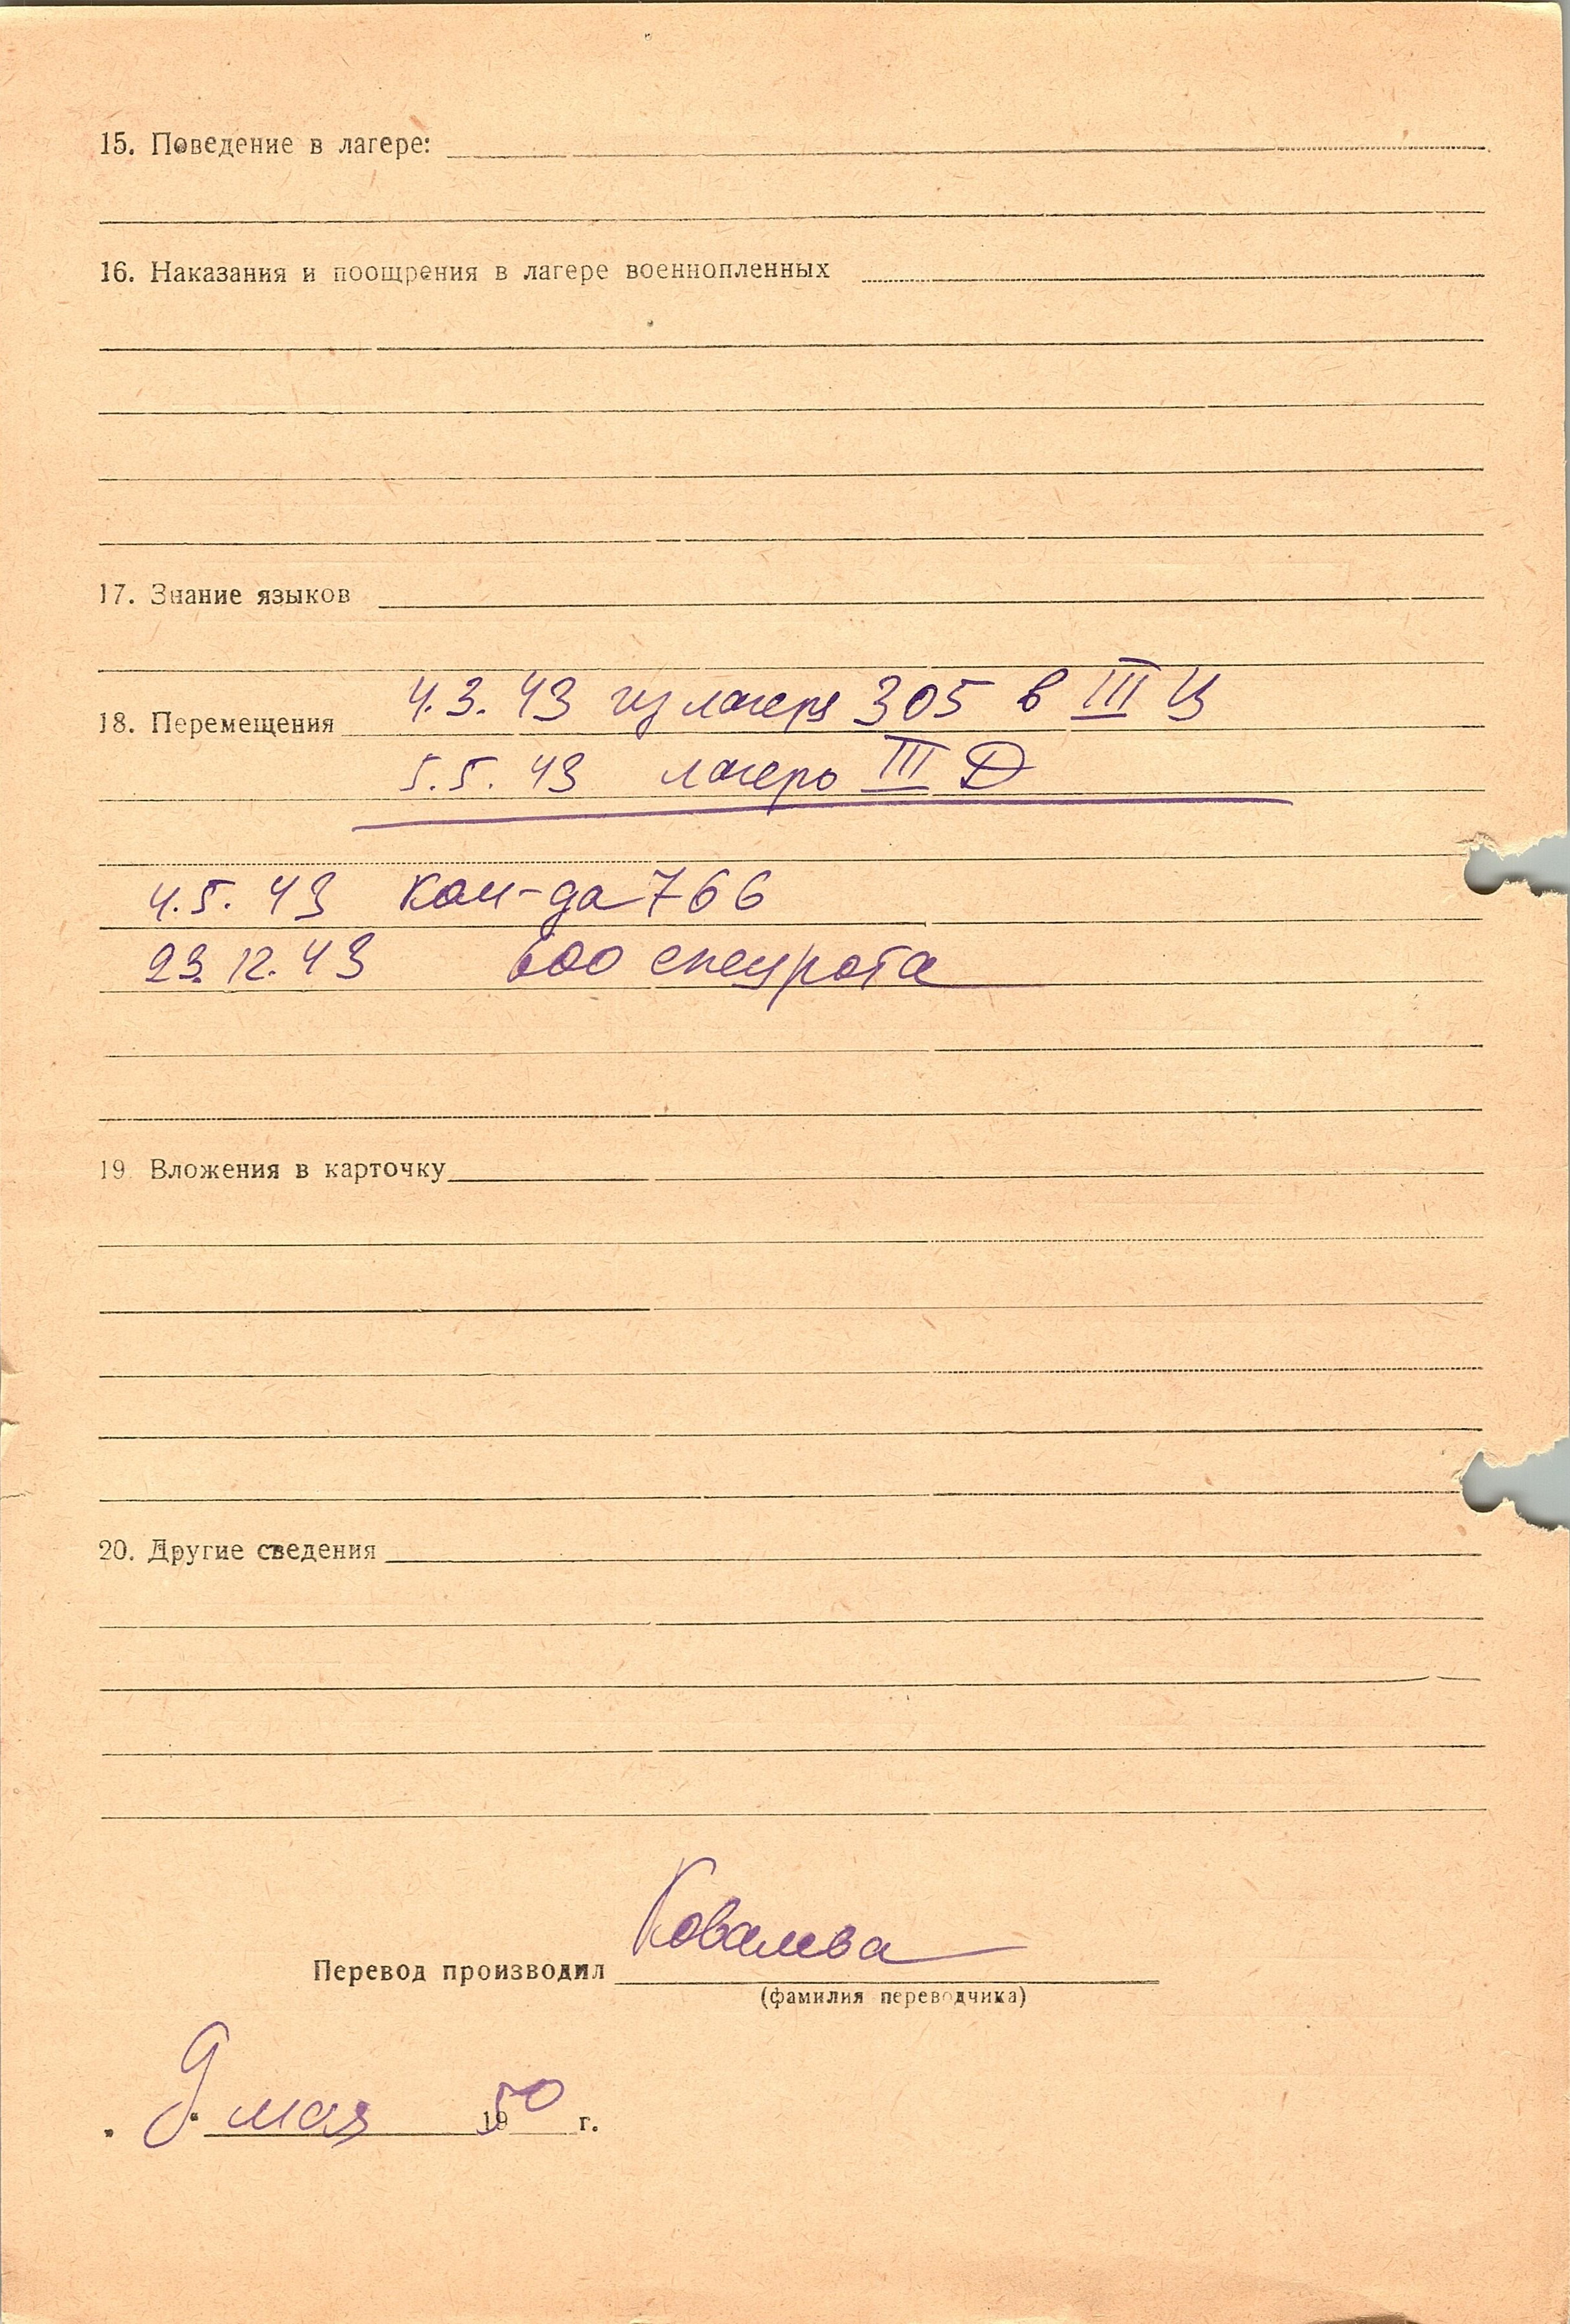 15. Поведение в лагере:
16. Наказания и поощрения в лагере военнопленных
17. Знание языков
4.3.43 из лагеря 305 в III Ц
18. Перемещения
5.5.43 лагерь III Д
4.5.43 Ком-да 766
23.12.43 600 спецрота
19. Вложения в карточку
20. Другие сведения
Ковалева
Перевод производил
(фамилия переводчика)
9 мая 1950 г.